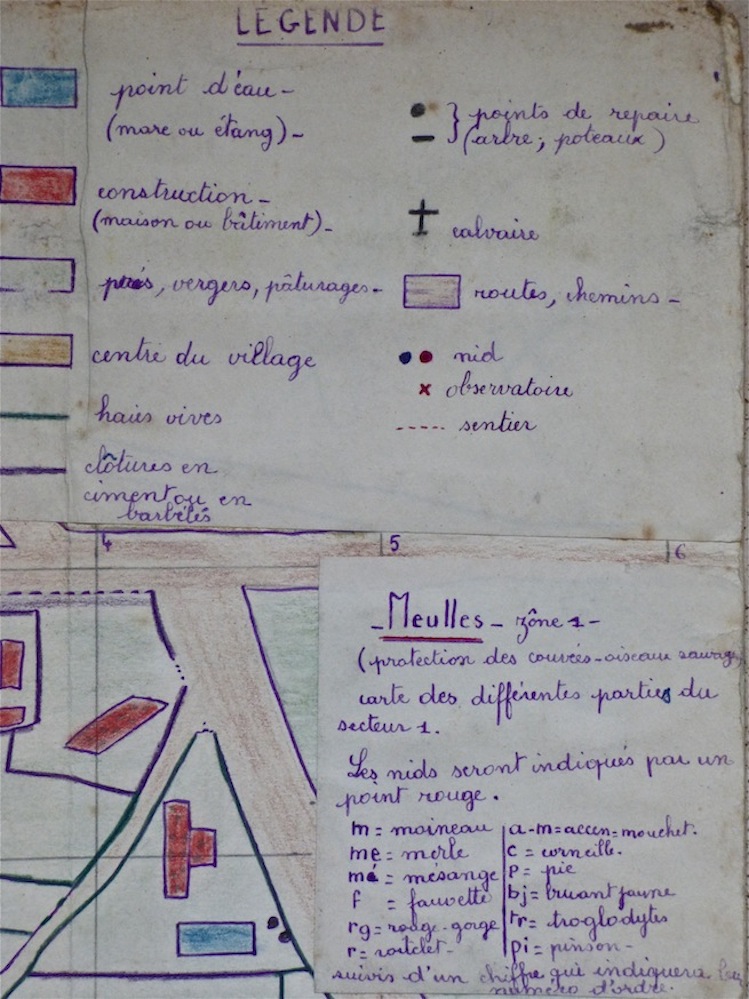 LEGENDE
point d'éau -
(mare ou étang) -
construction -
(maison ou bâtiment) -
prés, vergers, pâturages -
centre du village
haies vives
clôtures en
ciment ou en
barbelés
points de repaire
(arbre ; poteaux)
calvaire
routes, chemins -
nid
observatoire
sentier
4
5
6
- Meulles - zône 1 -
(protection des couvées - oiseaux sauvages
carte des différentes parties du
secteur 1.
Les nids seront indiqués par un
point rouge.
m = moineau
me = merle
mé = mésange
f = fauvette
rg = rouge-gorge
r = roitelet -
a-m = accen-mouchet.
c = corneille.
p = pie
bj = bruant jaune
tr = troglodytes
pi = pinson -
suivis d'un chiffre qui indiquera
numéro d'ordre.